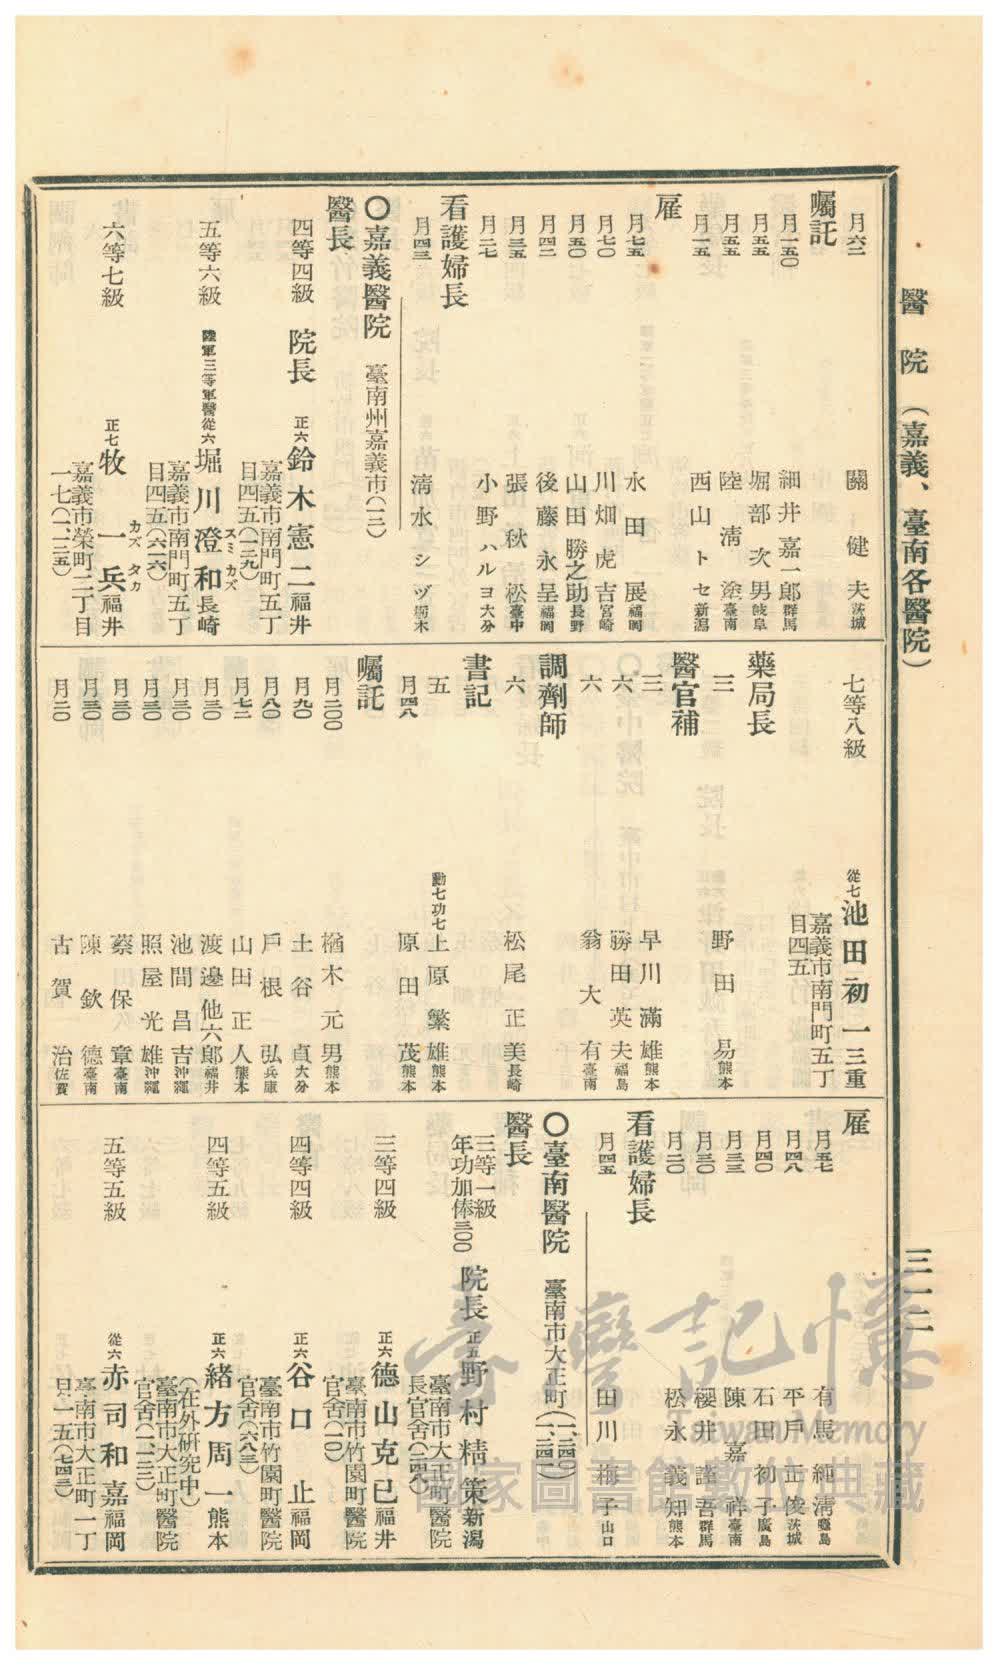 醫院（嘉義、臺南各醫院）
三一二
月六二 關健夫 茨城
囑託
月一五〇 細井嘉一郎 群馬
月五五 堀部次男 岐阜
月五五 陸淸塗 臺南
月一五 西山トセ 新潟
雇
月七五 水田展 福岡
月七〇 川畑虎吉 宮崎
月五〇 山田勝之助 長野
月四二 後藤永呈 福岡
月三五 張秋松 臺中
月二七 小野ハルヨ 大分
看護婦長
月四三 淸水シヅ 栃木
〇嘉義醫院 臺南州嘉義市(一二)
醫長
四等四級 院長 正六 鈴木憲二 福井
嘉義市南門町五丁
目四五(一二九)
五等六級 陸軍三等軍醫從六 堀川澄和 長崎
スミカズ
嘉義市南門町五丁
目四五(六一六)
六等七級 正七 牧一兵 福井
カズタカ
嘉義市榮町二丁目
一七(一、一二五)
七等八級 從七 池田初一 三重
嘉義市南門町五丁
目四五
藥局長
三 野田易 熊本
醫官補
三 早川滿雄 熊本
六 勝田英夫 福島
六 翁大有 臺南
調劑師
六 松尾正美 長崎
書記
五 勳七功七 上原繁雄 熊本
月四八 原田茂 熊本
囑託
月二〇〇 楢木元男 熊本
月九〇 土谷貞 大分
月八〇 戶根弘 兵庫
月七二 山田正人 熊本
月三〇 渡邊他六郞 福井
月三〇 池間昌吉 沖繩
月三〇 照屋光雄 沖繩
月三〇 蔡保章 臺南
月三〇 陳欽德 臺南
月二〇 古賀治 佐賀
雇
月五七 有馬純淸
月四八 平戶正俊 茨城
月四〇 石田初子 廣島
月三三 陳嘉祥 臺南
月三〇 櫻井謹吾 群馬
月二〇 松永義知 熊本
看護婦長
月四五 田川梅子 山口
〇臺南醫院 臺南市大正町
醫長
三等一級
年功加俸三〇〇 院長 正五 野村精策 新潟
臺南市大正町醫院
長官舍
三等四級 正六 德山克巳 福井
臺南市竹園町醫院
官舍(一〇)
四等四級 正六 谷口止 福岡
臺南市竹園町醫院
官舍(六八三)
四等五級 正六 緖方周一 熊本
(在外硏究中)
臺南市大正町醫院
官舍(一一二三)
五等五級 從六 赤司和嘉 福岡
臺南市大正町一丁
目一五(七四三)
臺灣記憶
Taiwan Memory
國家圖書館數位典藏